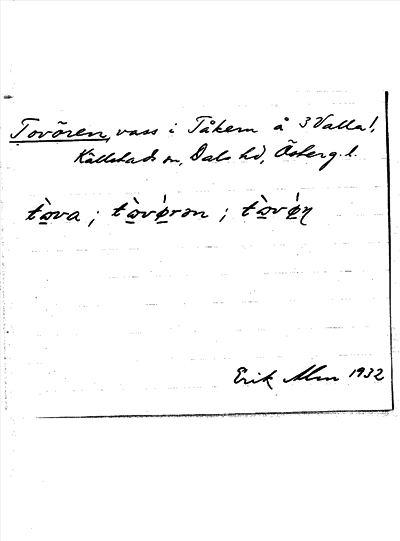 Tovören, vass i Tåkern å 3 Valla!,
Källstads sn, Dals hd, Österg. l.
tò̱va ; tò̱vǿ̱rən ; tò̱vǿ̱ɳ
Erik Alm 1932